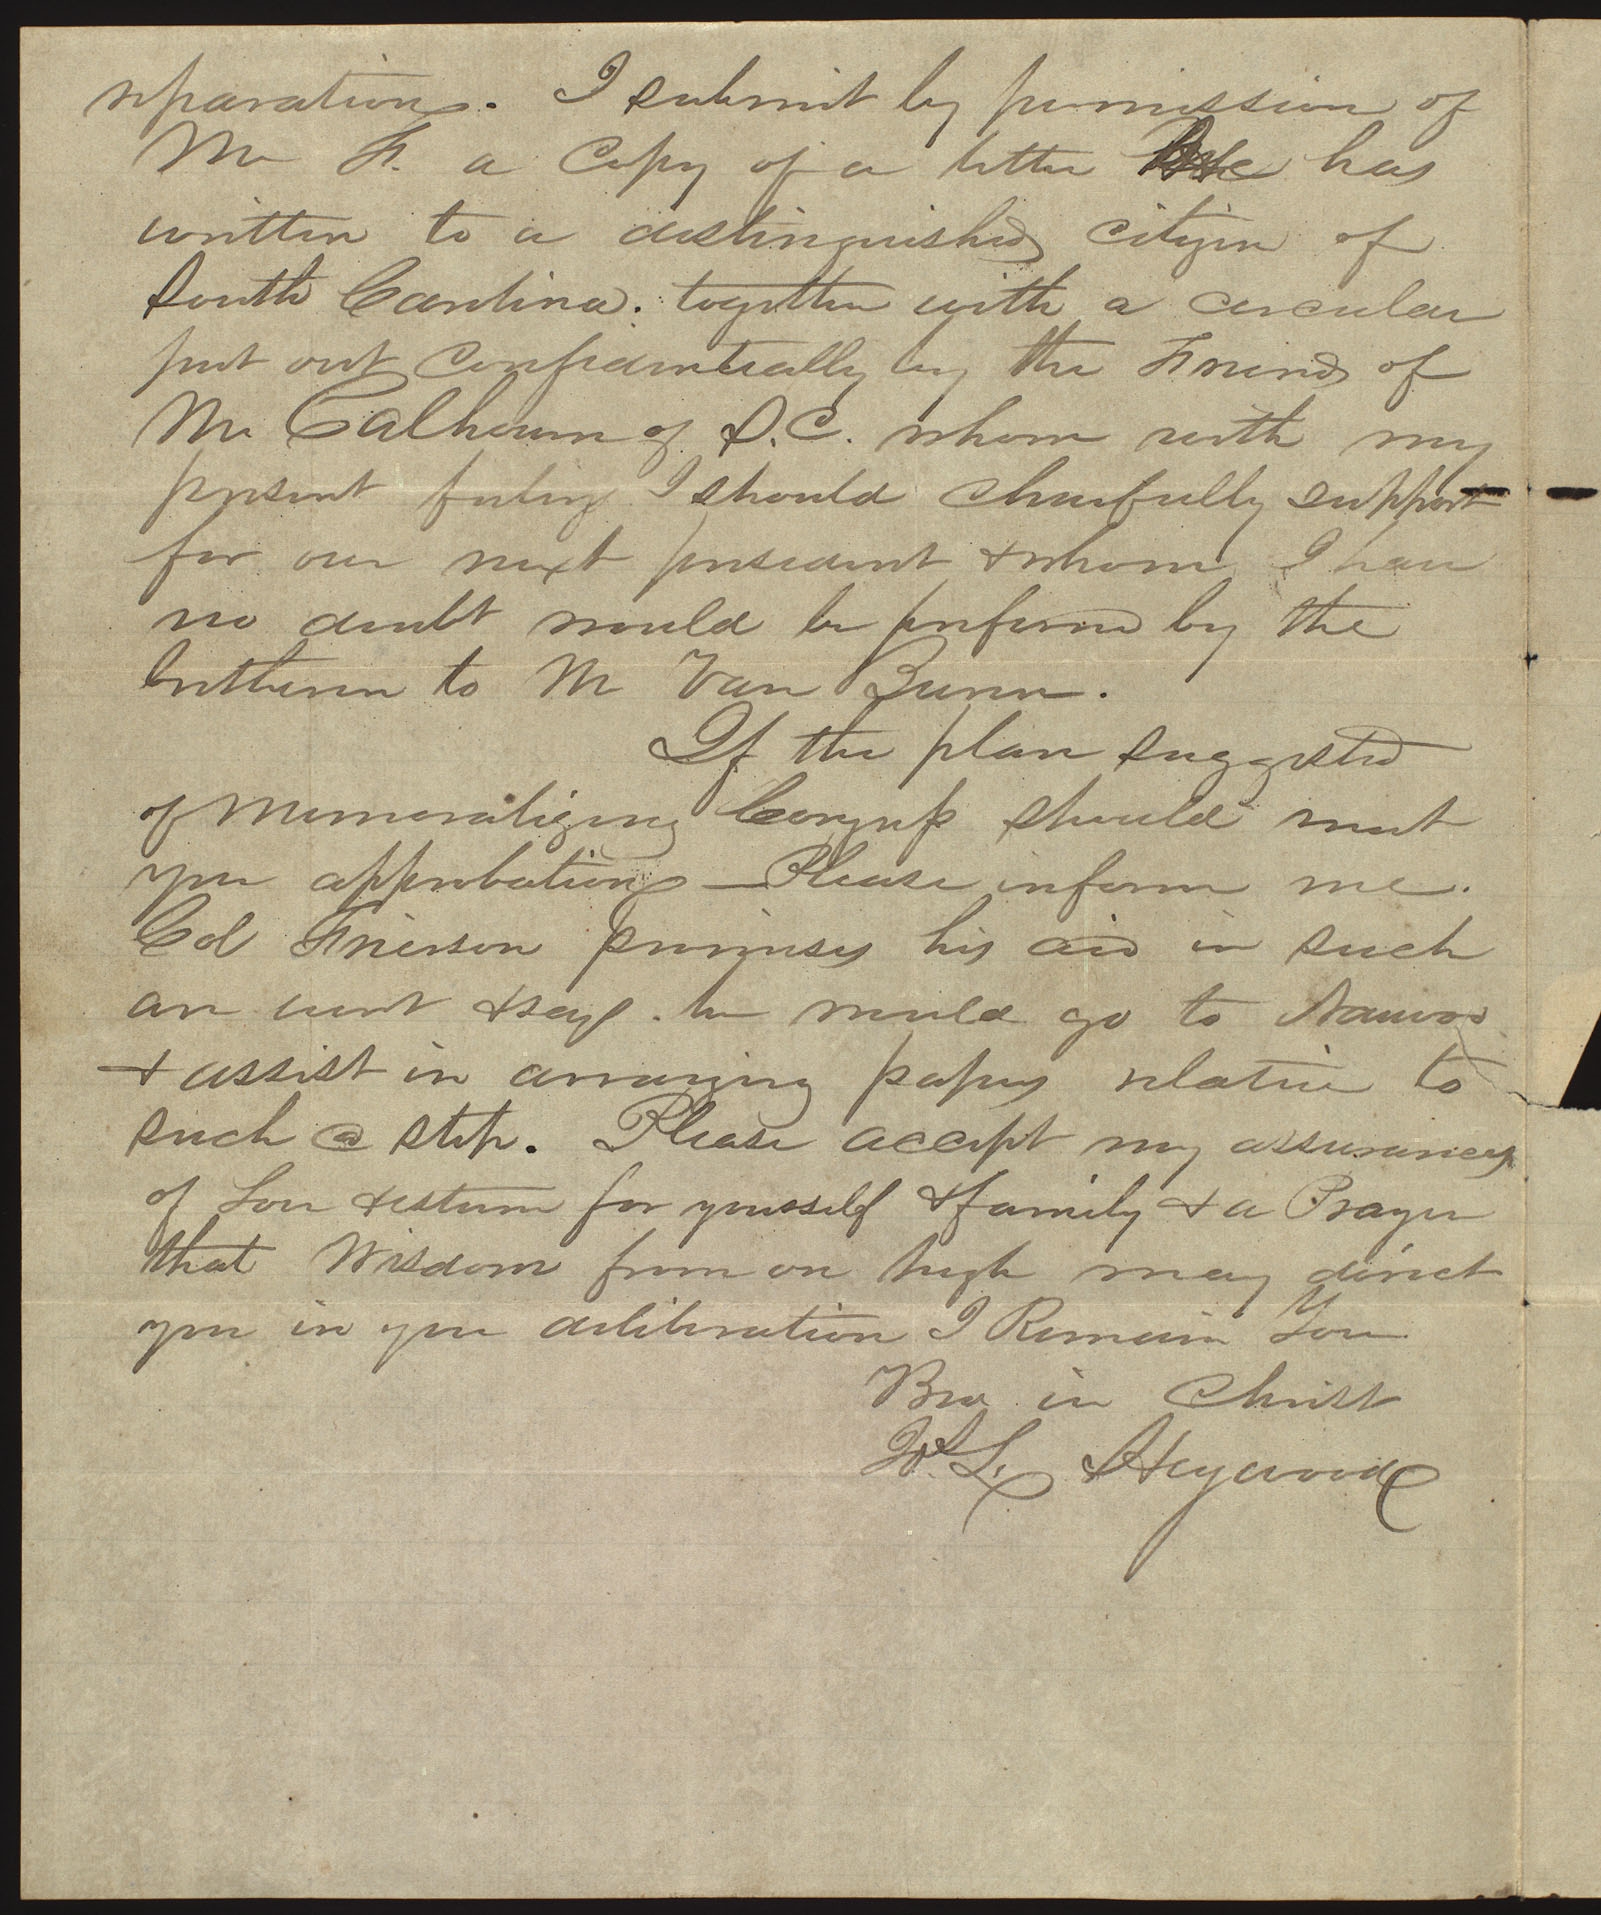 reparation. I submit by permission of
Mr F. a Copy of a letter he has
written to a distinguished citizen of
South Carolina. together with a circular
put out confidentially by the Friends of
Mr Calhoun of S.C. whom with my
present feelings I should chearfully support
for our next president & whom I have
no doubt would be prefered by the
bretheren to M Van Buren.
If the plan suggested
of memoralizing Congress should meet
your approbation — Please inform me.
Col Frierson promises his aid in such
an event & says he would go to Nauvoo
& assist in arranging papers relative to
such a step. Please accept my assurances
of Love & esteem for yourself & family & a Prayer
that Wisdom from on high may direct
you in your deliberation I Remain Your
Bro in Christ
J. L. Heywood